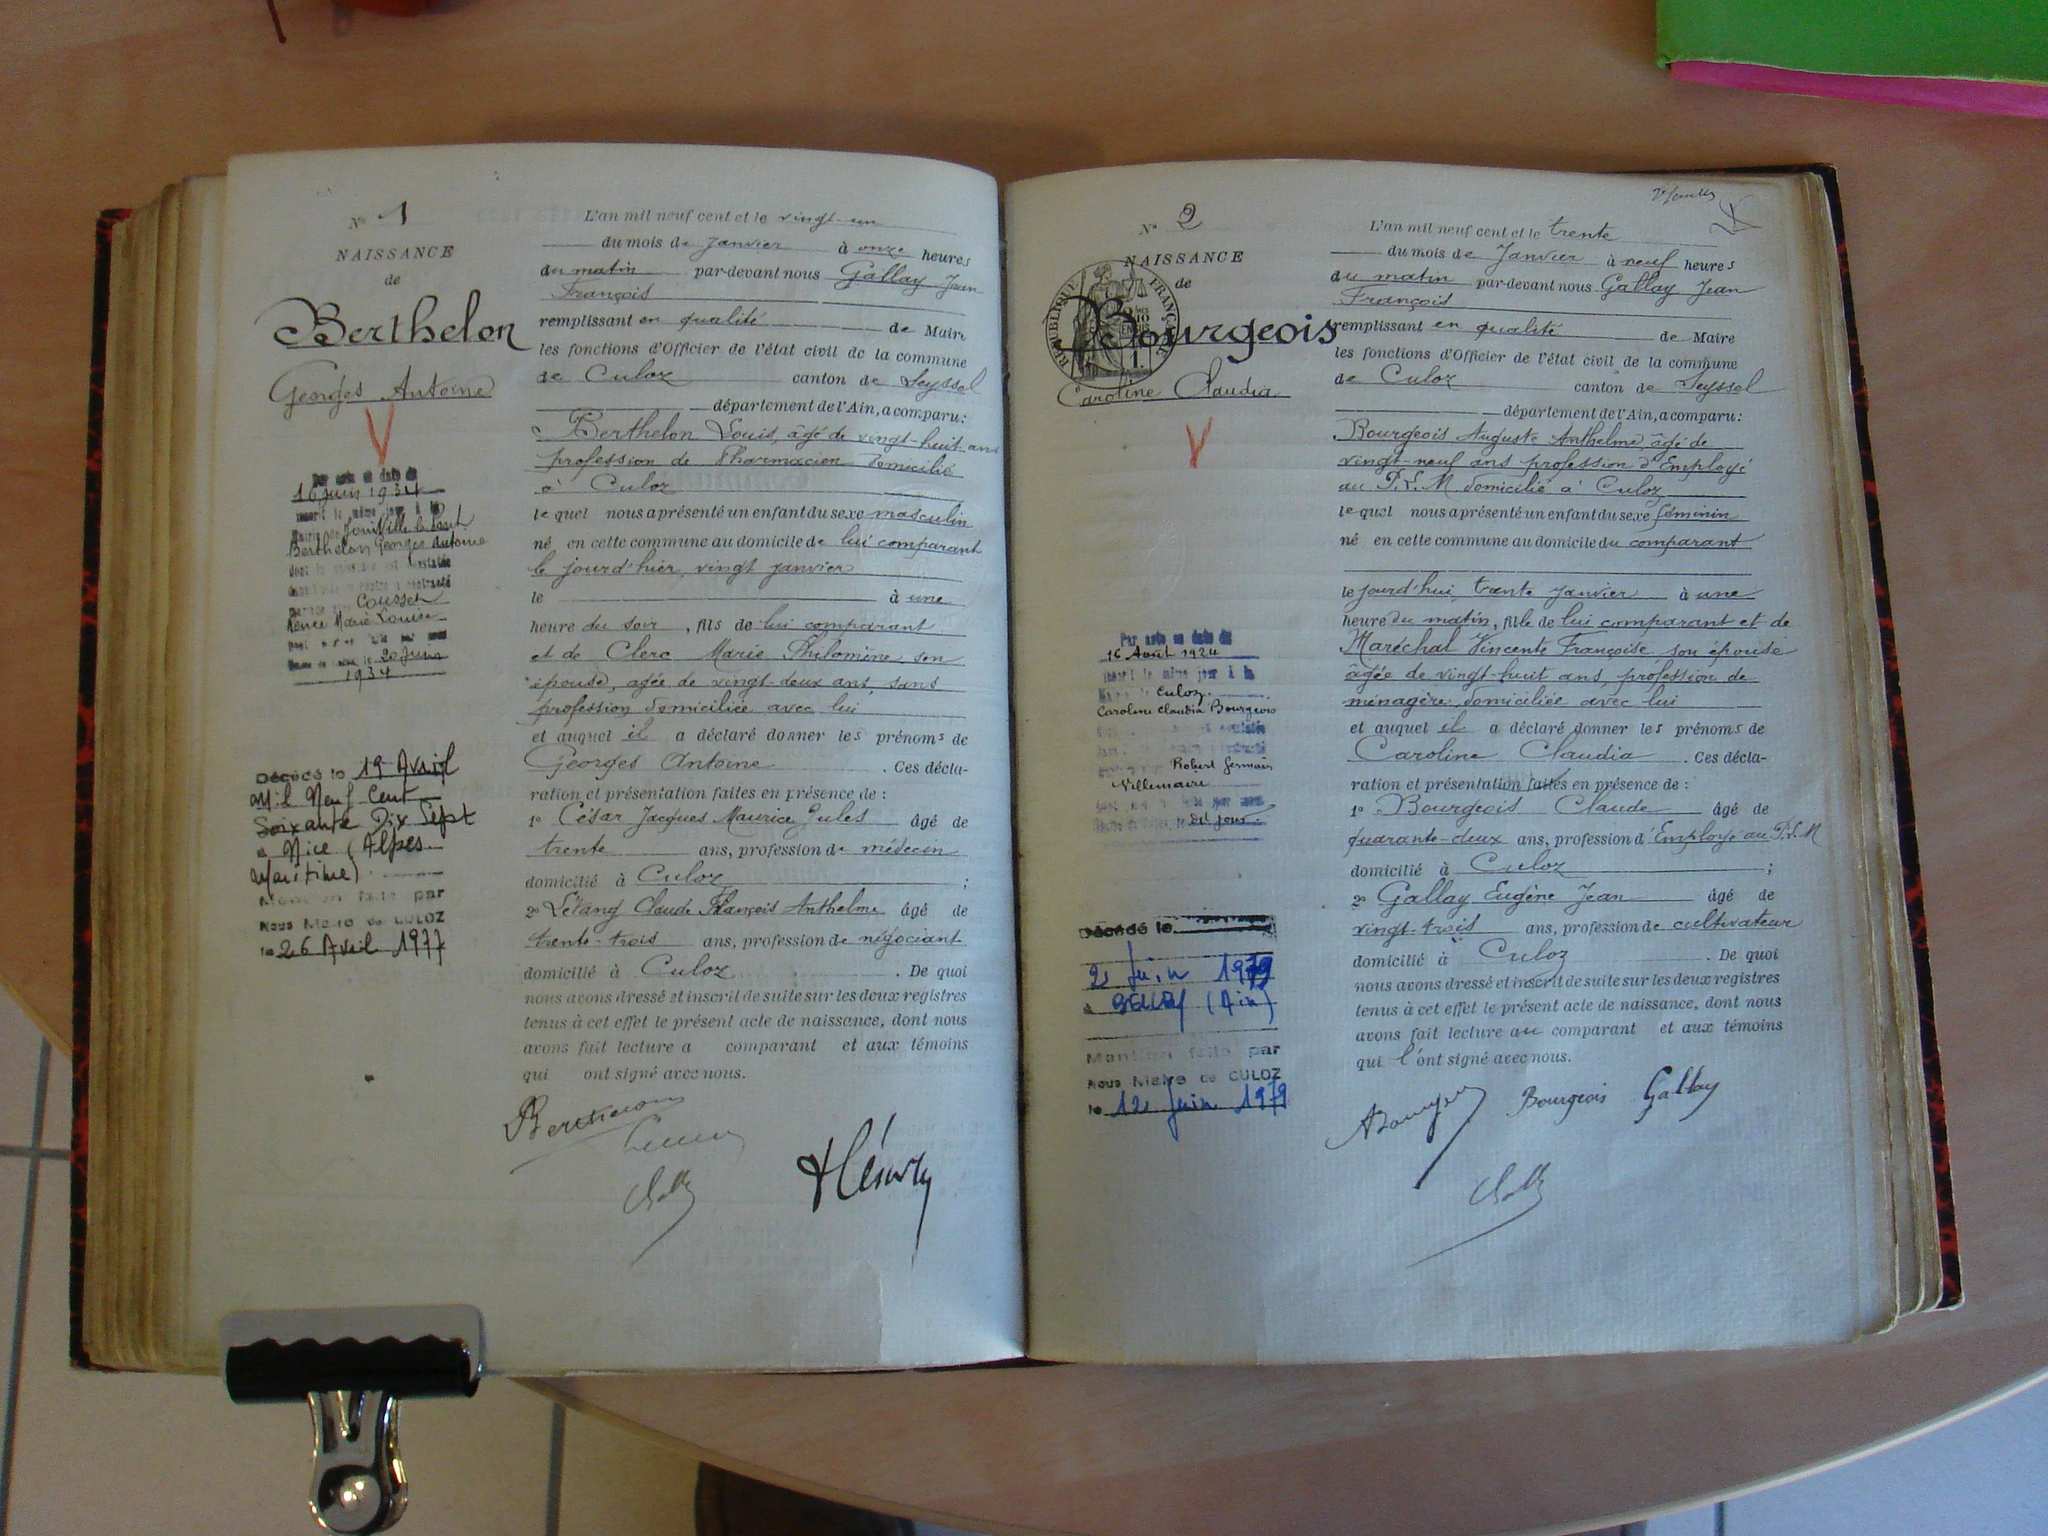 N° 1
NAISSANCE
de
Berthelon
Georges Antoine
Par acte en date du
16 juin 1934
inscrit le même jour à la
Mairie de Joinville le Pont
Berthelon Georges Antoine
Cousset
Renée Marie Louise
20 Juin
1934
Décédé le 19 Avril
Mil Neuf Cent
Soixante Dix Sept
à Nice (Alpes
Maritime)
Mention faite par
Nous Maire de CULOZ
le 26 Avril 1977
L'an mil neuf cent et le vingt-un
du mois de janvier à onze heures
du matin par-devant nous Gallay Jean
François
remplissant en qualité de Maire
les fonctions d'Officier de l'état civil de la commune
de Culoz canton de Seyssel
département de l'Ain, a comparu:
Berthelon Louis, âgé de vingt-huit ans
profession de Pharmacien domicilié
à Culoz
lequel nous a présenté un enfant du sexe masculin
né en cette commune au domicile de lui comparant
le jourd'hier, vingt janvier
le à une
heure du soir, fils de lui comparant
et de Clerc Marie Philomène son
épouse, agée de vingt-deux ans, sans
profession domiciliée avec lui
et auquel il a déclaré donner les prénoms de
Georges Antoine . Ces décla-
ration et présentation faites en présence de :
1° César Jacques Maurice Jules âgé de
trente ans, profession de médecin
domicilié à Culoz ;
2° Létang Claude François Anthelme âgé de
trente-trois ans, profession de négociant
domicilié à Culoz . De quoi
nous avons dressé et inscrit de suite sur les deux registres
tenus à cet effet le présent acte de naissance, dont nous
avons fait lecture a comparant et aux témoins
qui ont signé avec nous.
Berthelon
N° 2
NAISSANCE
de
RÉPUBLIQUE FRANÇAISE
Bourgeois
Caroline Claudia
Par acte en date du
16 Août 1924
inscrit le même jour à la
Mairie de Culoz
Caroline Claudia Bourgeois
Robert Germain
Villemaire
dit jour.
Décédé le
2 Juin 1979
à BELLEY (Ain)
Mention faite par
Nous Maire de CULOZ
le 12 Juin 1979
L'an mil neuf cent et le trente
du mois de Janvier à neuf heures
du matin par-devant nous Gallay Jean
François
remplissant en qualité de Maire
les fonctions d'Officier de l'état civil de la commune
de Culoz canton de Seyssel
département de l'Ain, a comparu:
Bourgeois Auguste Anthelme, âgé de
vingt-neuf ans profession d'Employé
au P.L.M domicilié à Culoz
lequel nous a présenté un enfant du sexe féminin
né en cette commune au domicile du comparant
le jourd'hui, trente janvier à une
heure du matin, fille de lui comparant et de
Maréchal Vincente Françoise son épouse
âgée de vingt-huit ans, profession de
ménagère domiciliée avec lui
et auquel il a déclaré donner les prénoms de
Caroline Claudia . Ces décla-
ration et présentation faites en présence de :
1° Bourgeois Claude âgé de
quarante-deux ans, profession d'Employé au P.L.M
domicilié à Culoz ;
2° Gallay Eugène Jean âgé de
vingt-trois ans, profession de cultivateur
domicilié à Culoz . De quoi
nous avons dressé et inscrit de suite sur les deux registres
tenus à cet effet le présent acte de naissance, dont nous
avons fait lecture au comparant et aux témoins
qui l'ont signé avec nous.
ABourgeois Bourgeois Gallay